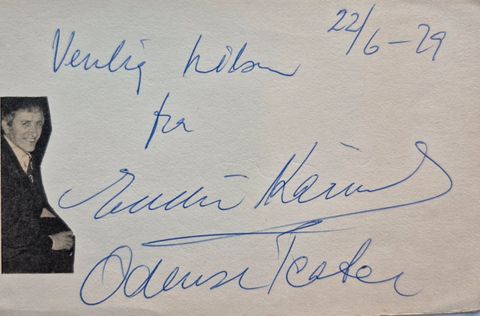 22/6-79
Venlig hilsen
fra
Odense Teater